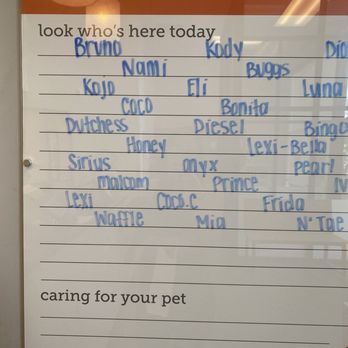 look who's here today
Bruno Kody
Nami Buggs
Kojo Eli Luna
CoCo Bonita
Dutchess Diesel Bingo
Honey Lexi-Bella
Sirius onyx Pearl
malcom Prince
Lexi Coco.C Frida
Waffle Mia N'Tae
caring for your pet